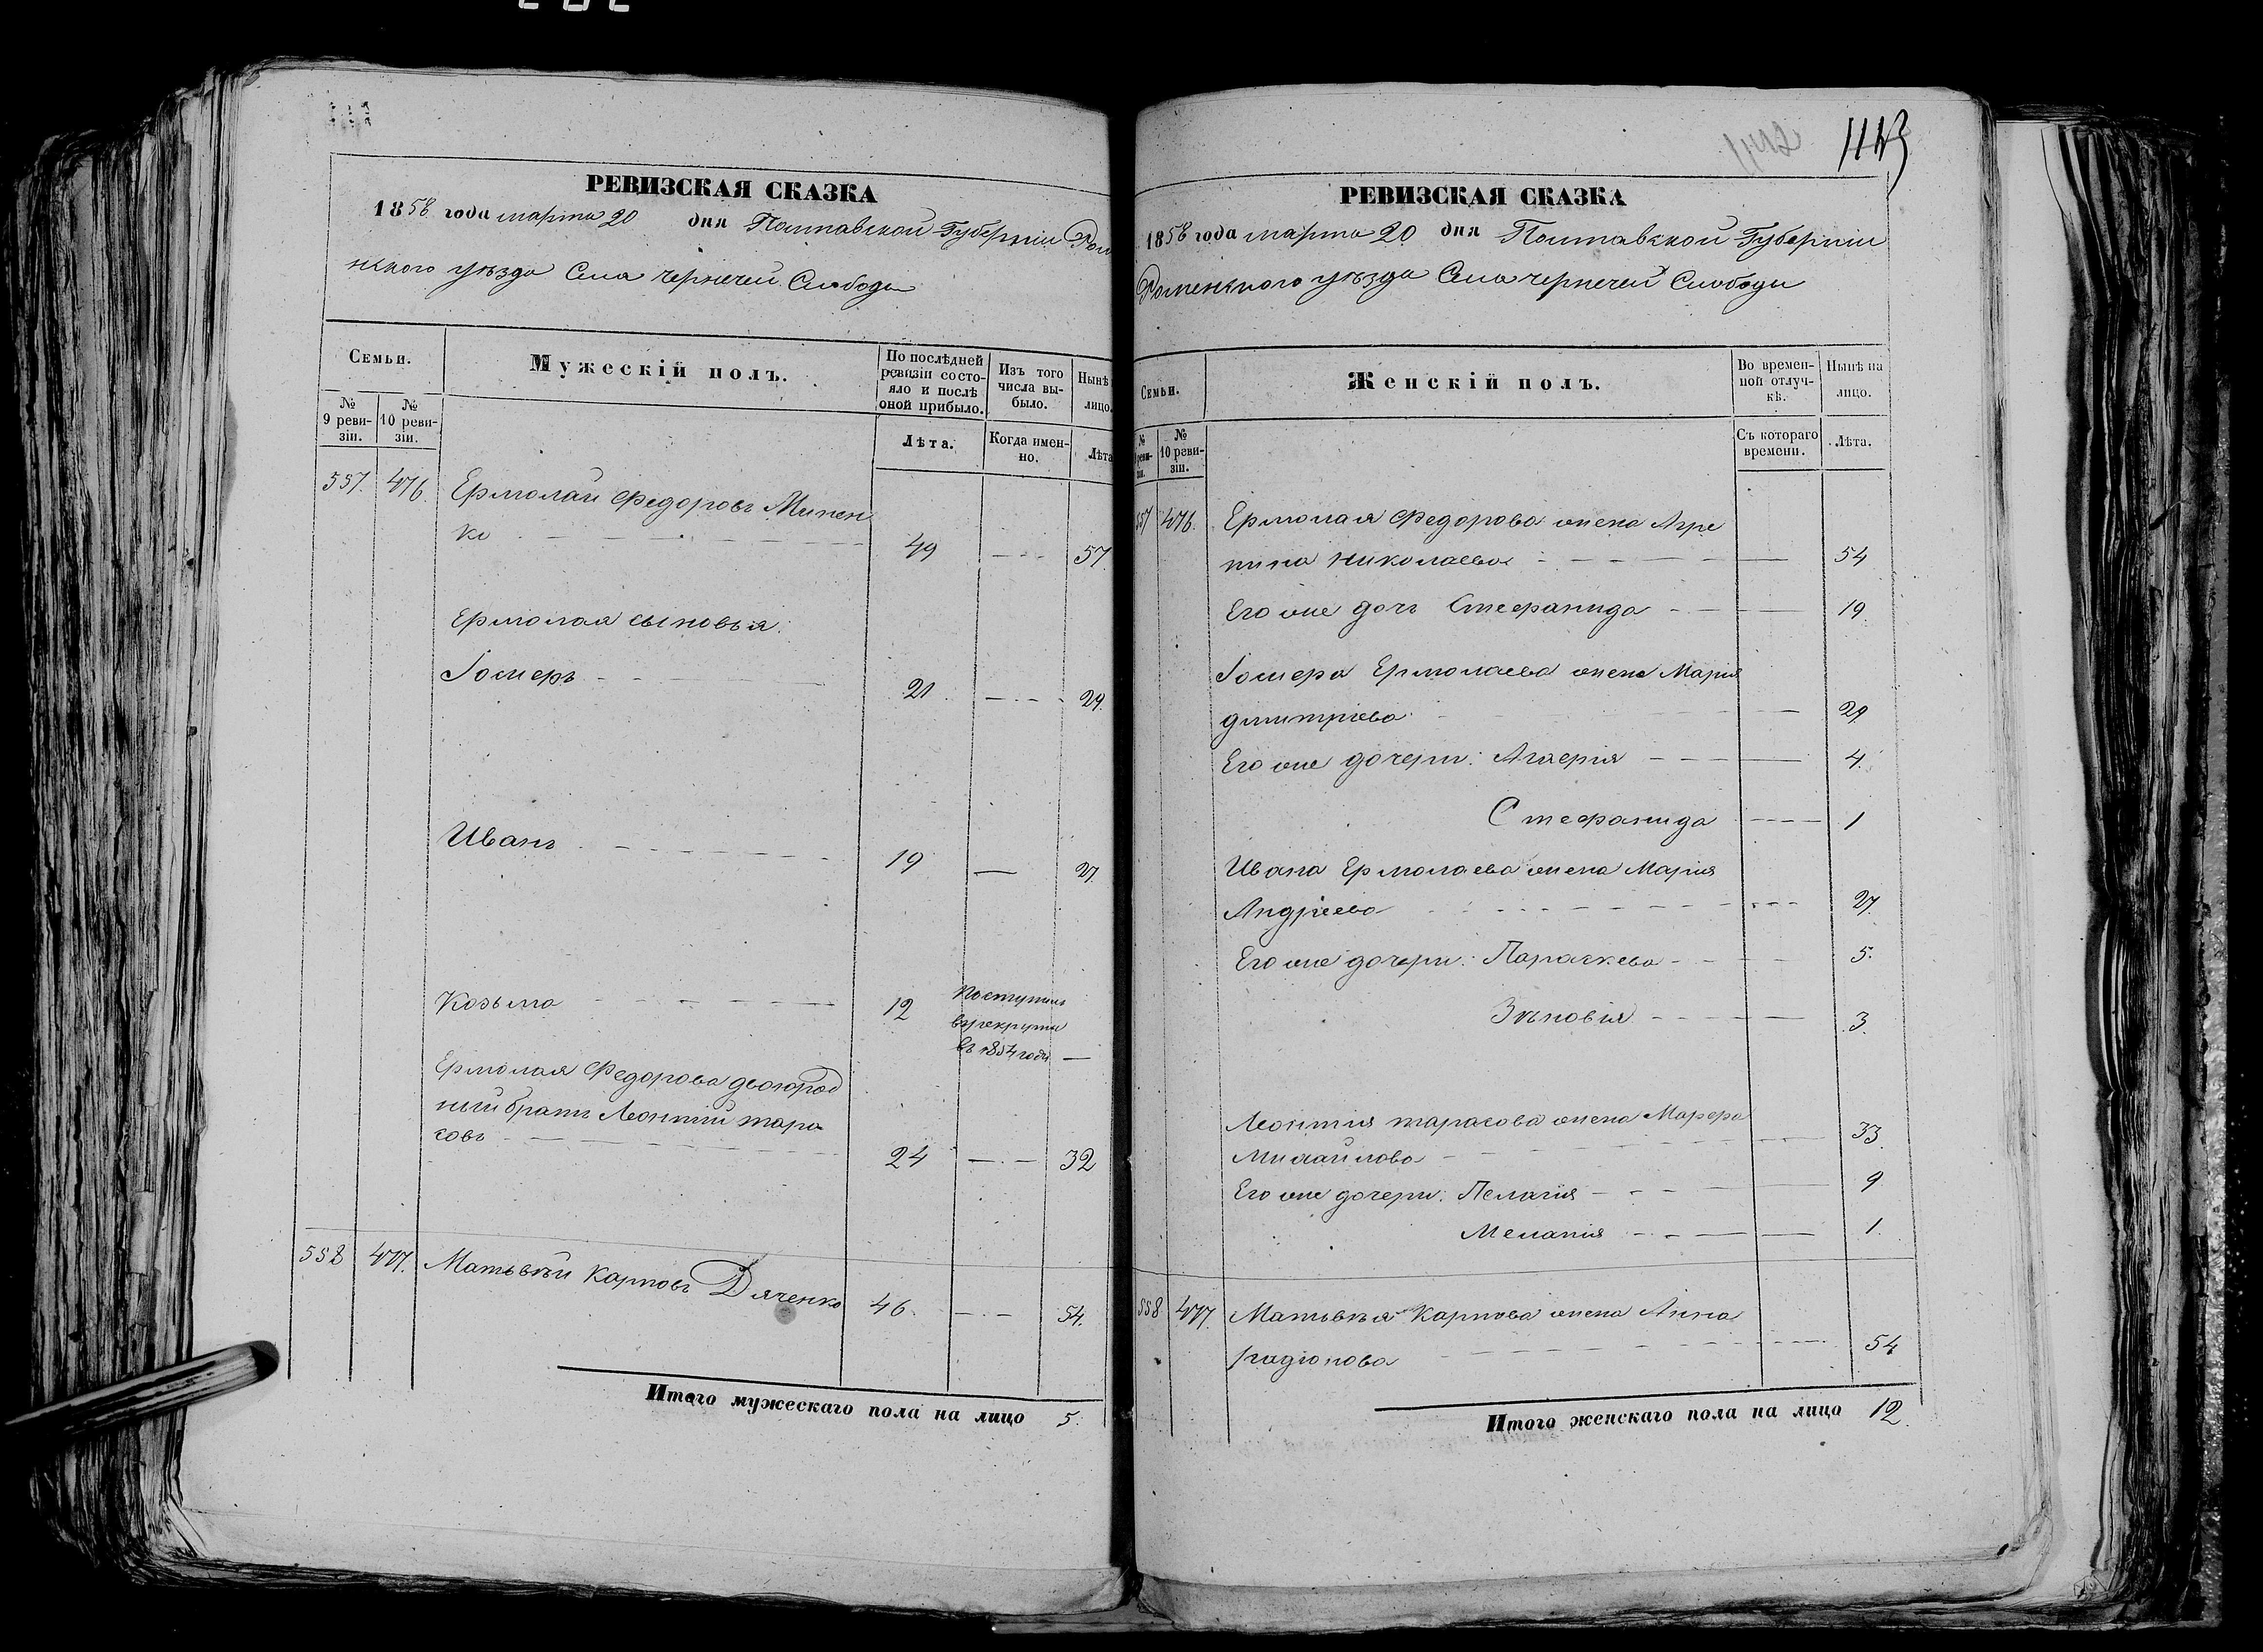 1143
РЕВИЗСКАЯ СКАЗКА
1858 года марта 20 дня Полтавской Губерніи Ром
нского уѣзда Села Чернечей Слободы
Семьи.
Мужескій полъ.
По послѣдней ревизіи состояло и послѣ оной прибыло.
Изъ того числа выбыло.
Нынѣ
лицо.
№ 9 ревизіи.
№ 10 ревизіи.
Лѣта.
Когда именно.
Лѣта
557. 476. Ермолай Федоровъ Минен
ко 49 57
Ермолая сыновья:
Іосифъ 21 29.
Иванъ 19 27.
Козьма 12 Поступилъ
въ рекруты
въ 1854 годѣ
Ермолая Федорова двоюрод
ный братъ Леонтій Тара
совъ 24 32
558 477. Матьвѣй Карповъ Дяченко 46. 54.
Итого мужескаго пола на лицо 5.
РЕВИЗСКАЯ СКАЗКА
1858 года марта 20 дня Полтавской Губерніи
Роменского уѣзда Села Чернечей Слободы
Семьи.
Женскій полъ.
Во временной отлучкѣ.
Нынѣ на лицо.
№ реви-
зіи.
№ 10 ревизіи.
Съ котораго времени.
Лѣта.
557 476. Ермолая Федорова жена Агре
пина Николаева 54
Его же дочь Стефанида 19.
Іосифа Ермолаева жена Марія
Димитріева 29.
Его же дочери: Агафія 4.
Стефанида 1
Ивана Ермолаева жена Марія
Андріева 27.
Его же дочери: Параскева 5.
Зѣновія 3.
Леонтия Тарасова жена Марфа
Михайлова 33.
Его же дочери: Пелагія 9
Меланія 1.
558 477. Матьвѣя Карпова жена Анна
Радіонова 54
Итого женскаго пола на лицо 12.